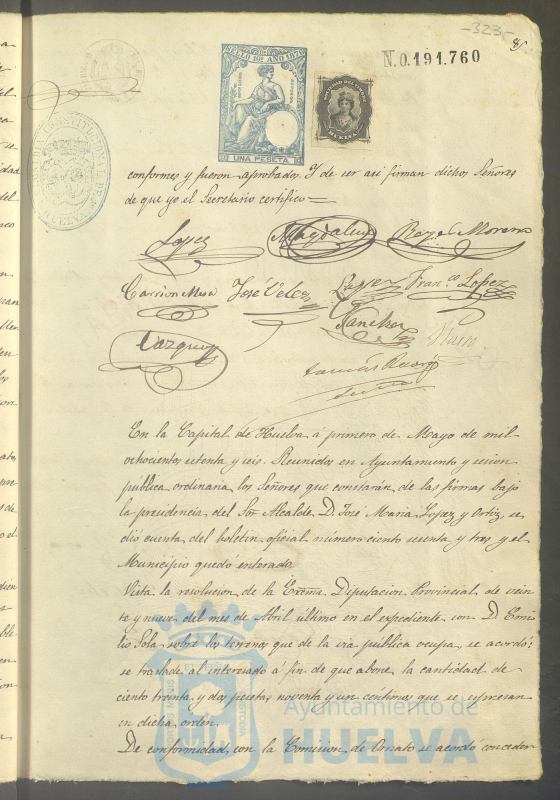 -323-
85
N.0.191.760
SELLO 10º AÑO 1876
UNA PESETA
HUELVA
conformes y fueron aprobados. Y de ser asi firman dichos Señores
de que yo el Secretario certifico=
Lopez Magdalena Bayo Moreno
Carrion Mesa José Velez Lopez Franco. Lopez
Sanchez
Vazquez
Tomás
En la Capital de Huelva á primero de Mayo de mil
ochocientos setenta y seis. Reunidos en Ayuntamiento y sesion
publica ordinaria los Señores que constarán de las firmas bajo
la presidencia del Sor Alcalde D. José Maria Lopez y Ortiz se
dió cuenta del boletin oficial número ciento y tres y el
Municipio quedó enterado
Vista la resolucion de la Exma. Diputacion Provincial de vein
te y nueve del mes de Abril último en el espediente con D. Emi
lio Sola sobre los terrenos que de la via pública ocupa, se acordó:
se traslade al interesado á fin de que abone la cantidad de
ciento treinta y dos pesetas noventa y un centimos que se espresan
en dicha orden.
De conformidad con la Comision de Ornato se acordó conceder
Ayuntamiento de
HUELVA